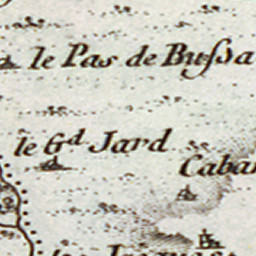 le Pas de Bußa
le Gd Jard
Caban